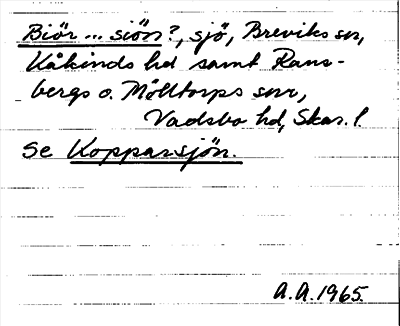 Biör ... siön?, sjö, Breviks sn,
Kåkinds hd samt Rans-
bergs o. Mölltorps snr,
Vadsbo hd, Skar. l.
Se Kopparsjön.
A.A. 1965.